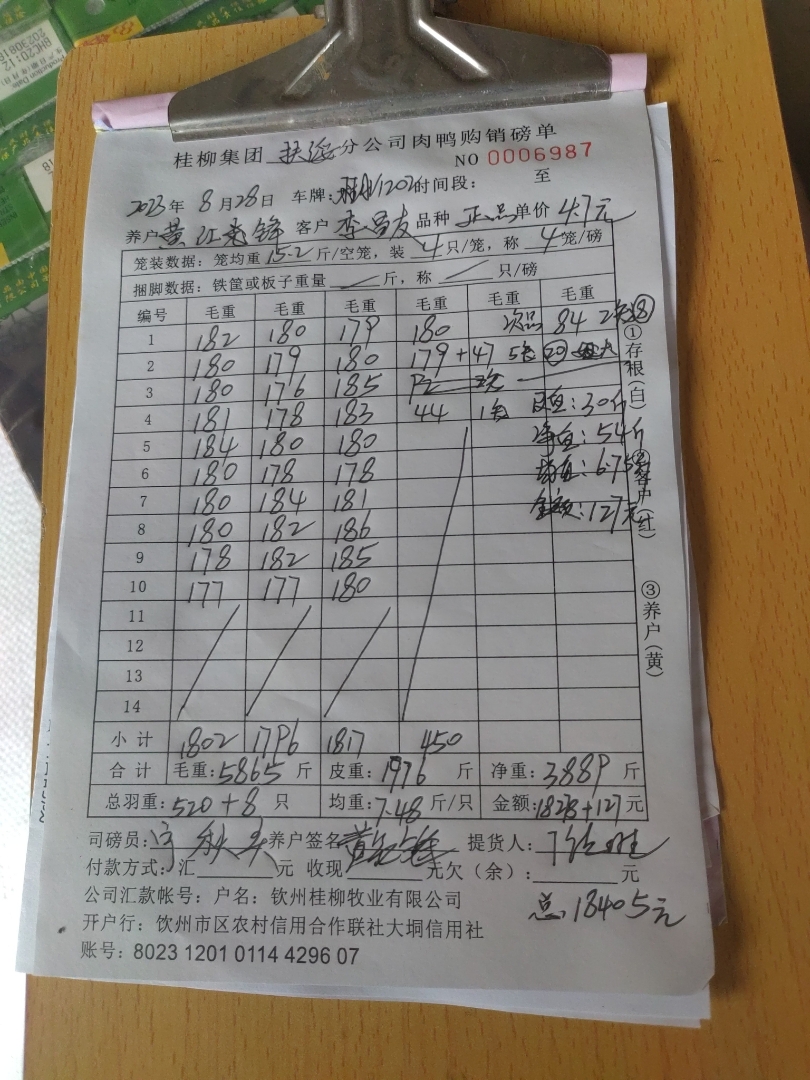 Production Date
20230816
BHC20:12
桂柳集团 扶绥 分公司肉鸭购销磅单
NO 0006987
2023年 8月28日 车牌: 1202 时间段: 至
养户 黄江 锋 客户 李昌友 品种 正品 单价 4.7元
笼装数据: 笼均重 15.2 斤/空笼, 装 4 只/笼, 称 4 笼/磅
捆脚数据: 铁筐或板子重量 / 斤, 称 / 只/磅
编号 毛重 毛重 毛重 毛重 毛重 毛重
1 182 180 179 180 次品 84 2 ⑧
2 180 179 180 179 + 47 5 20
3 180 176 185
4 181 178 183 44 1 皮重:30斤
5 184 180 180 净重:54斤
6 180 178 178 均重:6.75
7 180 184 181 金额:127元
8 180 182 186
9 178 182 185
10 177 177 180
11
12
13
14
小计 1802 1796 1817 450
合计 毛重:5865 斤 皮重:1976 斤 净重:3889 斤
总羽重:520+8 只 均重:7.48 斤/只 金额:18278+127元
司磅员: 养户签名 提货人:
付款方式:汇 元 收现 元欠(余): 元
公司汇款帐号:户名:钦州桂柳牧业有限公司
总18405元
开户行:钦州市区农村信用合作联社大垌信用社
账号:8023 1201 0114 4296 07
①存根(白)
②客户(红)
③养户(黄)